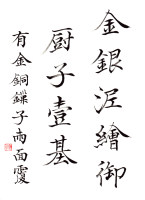 金銀泥繪御
厨子壹基
有金銅鏁子兩面覆